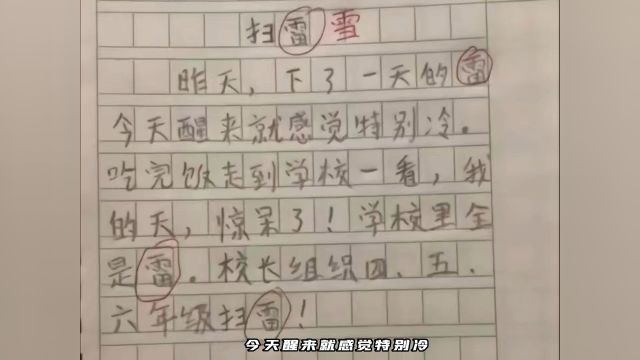 扫雷雪
昨天，下了一天的雷
今天醒来就感觉特别冷。
吃完饭走到学校一看，我
的天，惊呆了！学校里全
是雷。校长组织四、五、
六年级扫雷！
今天醒来就感觉特别冷